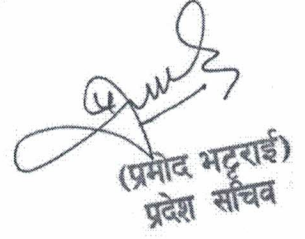 (प्रमोद भट्टराई)
प्रदेश सचिव